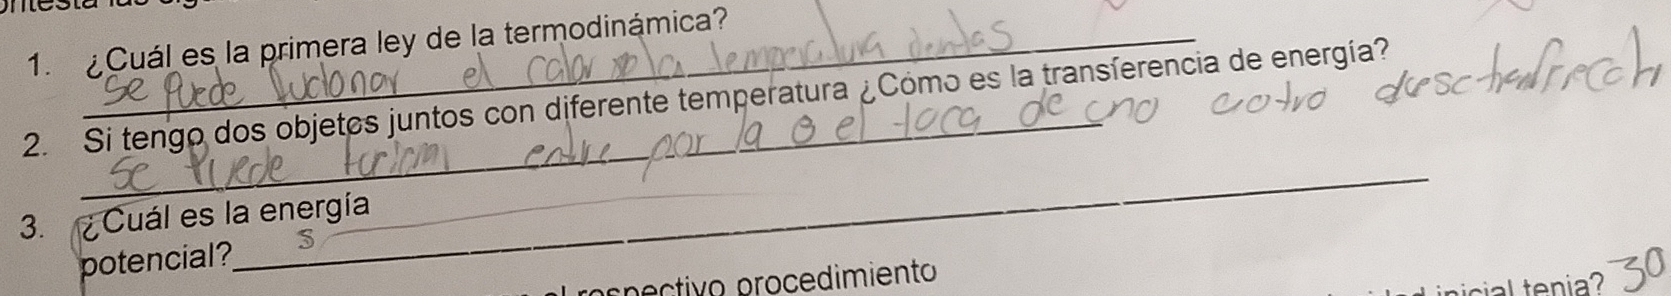 1. ¿Cuál es la primera ley de la termodinámica?
se puede fucionar el calor la temperatura
2. Si tengo dos objetos juntos con diferente temperatura ¿Cómo es la transferencia de energía?
se puede entre por la o el de cno cotro
3. ¿Cuál es la energía
potencial? s
respectivo procedimiento
inicial tenia? 30